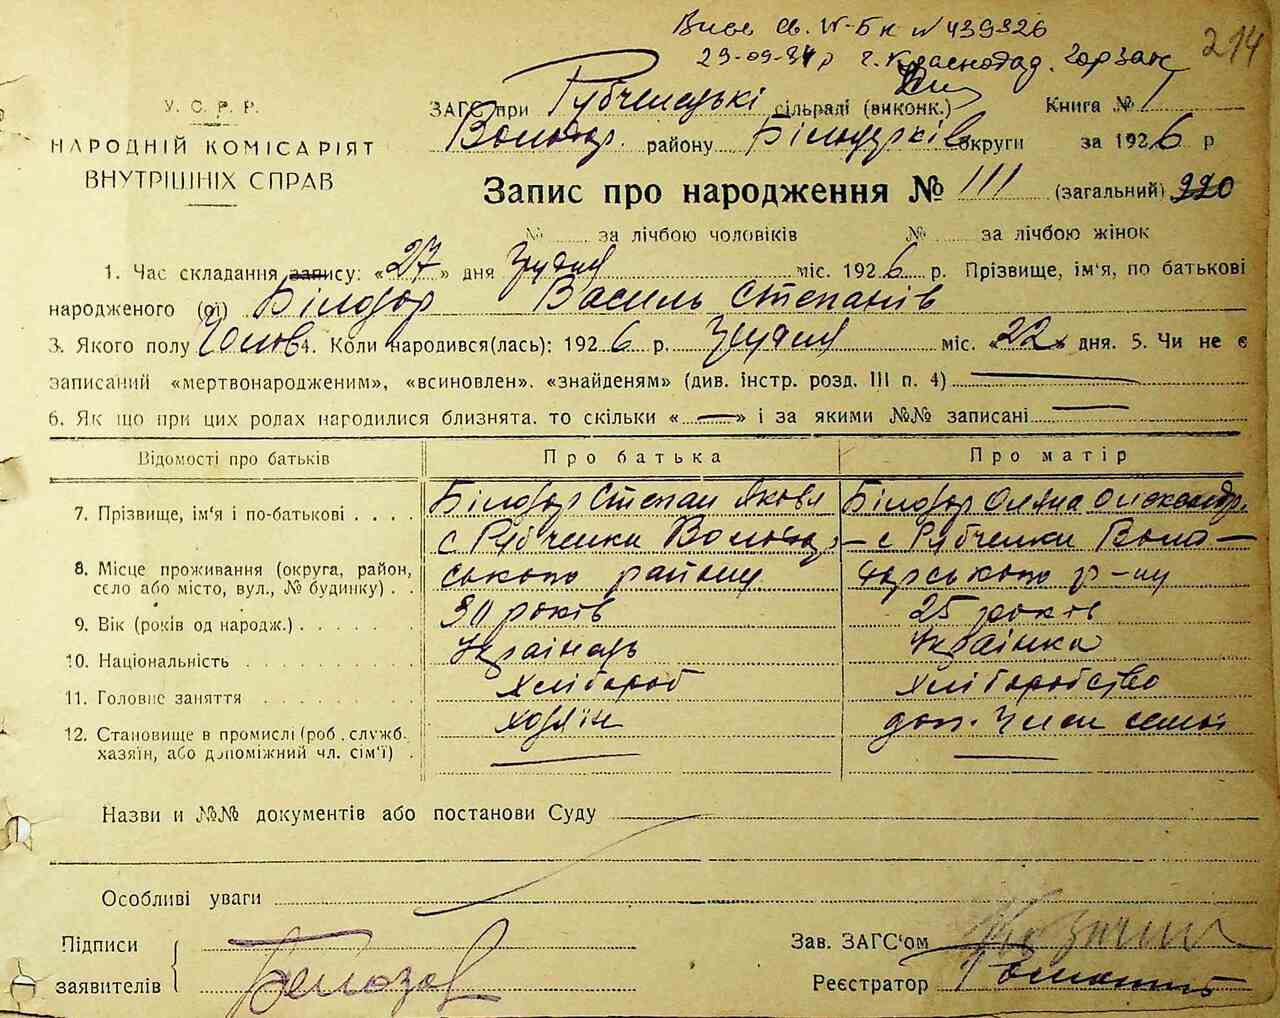 Вид. св. № 439326
214
23-09-   г. Краснодар. Горзагс
У. С. Р. Р.
НАРОДНІЙ КОМІСАРІЯТ
ВНУТРІШНІХ СПРАВ
ЗАГС при Рубченській сільраді (виконк.) Книга № 1
Володар. району Білоцерків округи за 1926 р
Запис про народження № 111 (загальний) 220
№ за лічбою чоловіків № за лічбою жінок
1. Час складання запису: «27» дня грудня міс. 1926 р. Прізвище, ім'я, по батькові
народженого (ої) Білозор Василь Степанів
3. Якого полу Чолов 4. Коли народився(лась): 1926 р. Грудня міс. «22» дня. 5. Чи не є
записаний «мертвонародженим», «всиновлен». «знайденям» (див. інстр. розд. III п. 4)
6. Як що при цих родах народилися близнята. то скільки «—» і за якими №№ записані
Відомості про батьків Про батька Про матір
7. Прізвище, ім'я і по-батькові . . . . Білозор Степан Яковл Білозор Оляна Олександр.
с Рубченки Волода- – с Рубченки Воло–
8. Місце проживання (округа, район, село або місто, вул., № будинку) . . ського району дарського р-ну
9. Вік (років од народж.) . . . . . . 30 років 25 років
10. Національність . . . . . . . . . Українець Українка
11. Головне заняття . . . . . . . . хлібороб хліборобство
12. Становище в промислі (роб., служб. хазяїн, або допоміжний чл. сім'ї) . хозяїн доп. член семї
Назви и №№ документів або постанови Суду
Особливі уваги
Підписи
заявителів
Белозор
Зав. ЗАГС'ом
Реєстратор